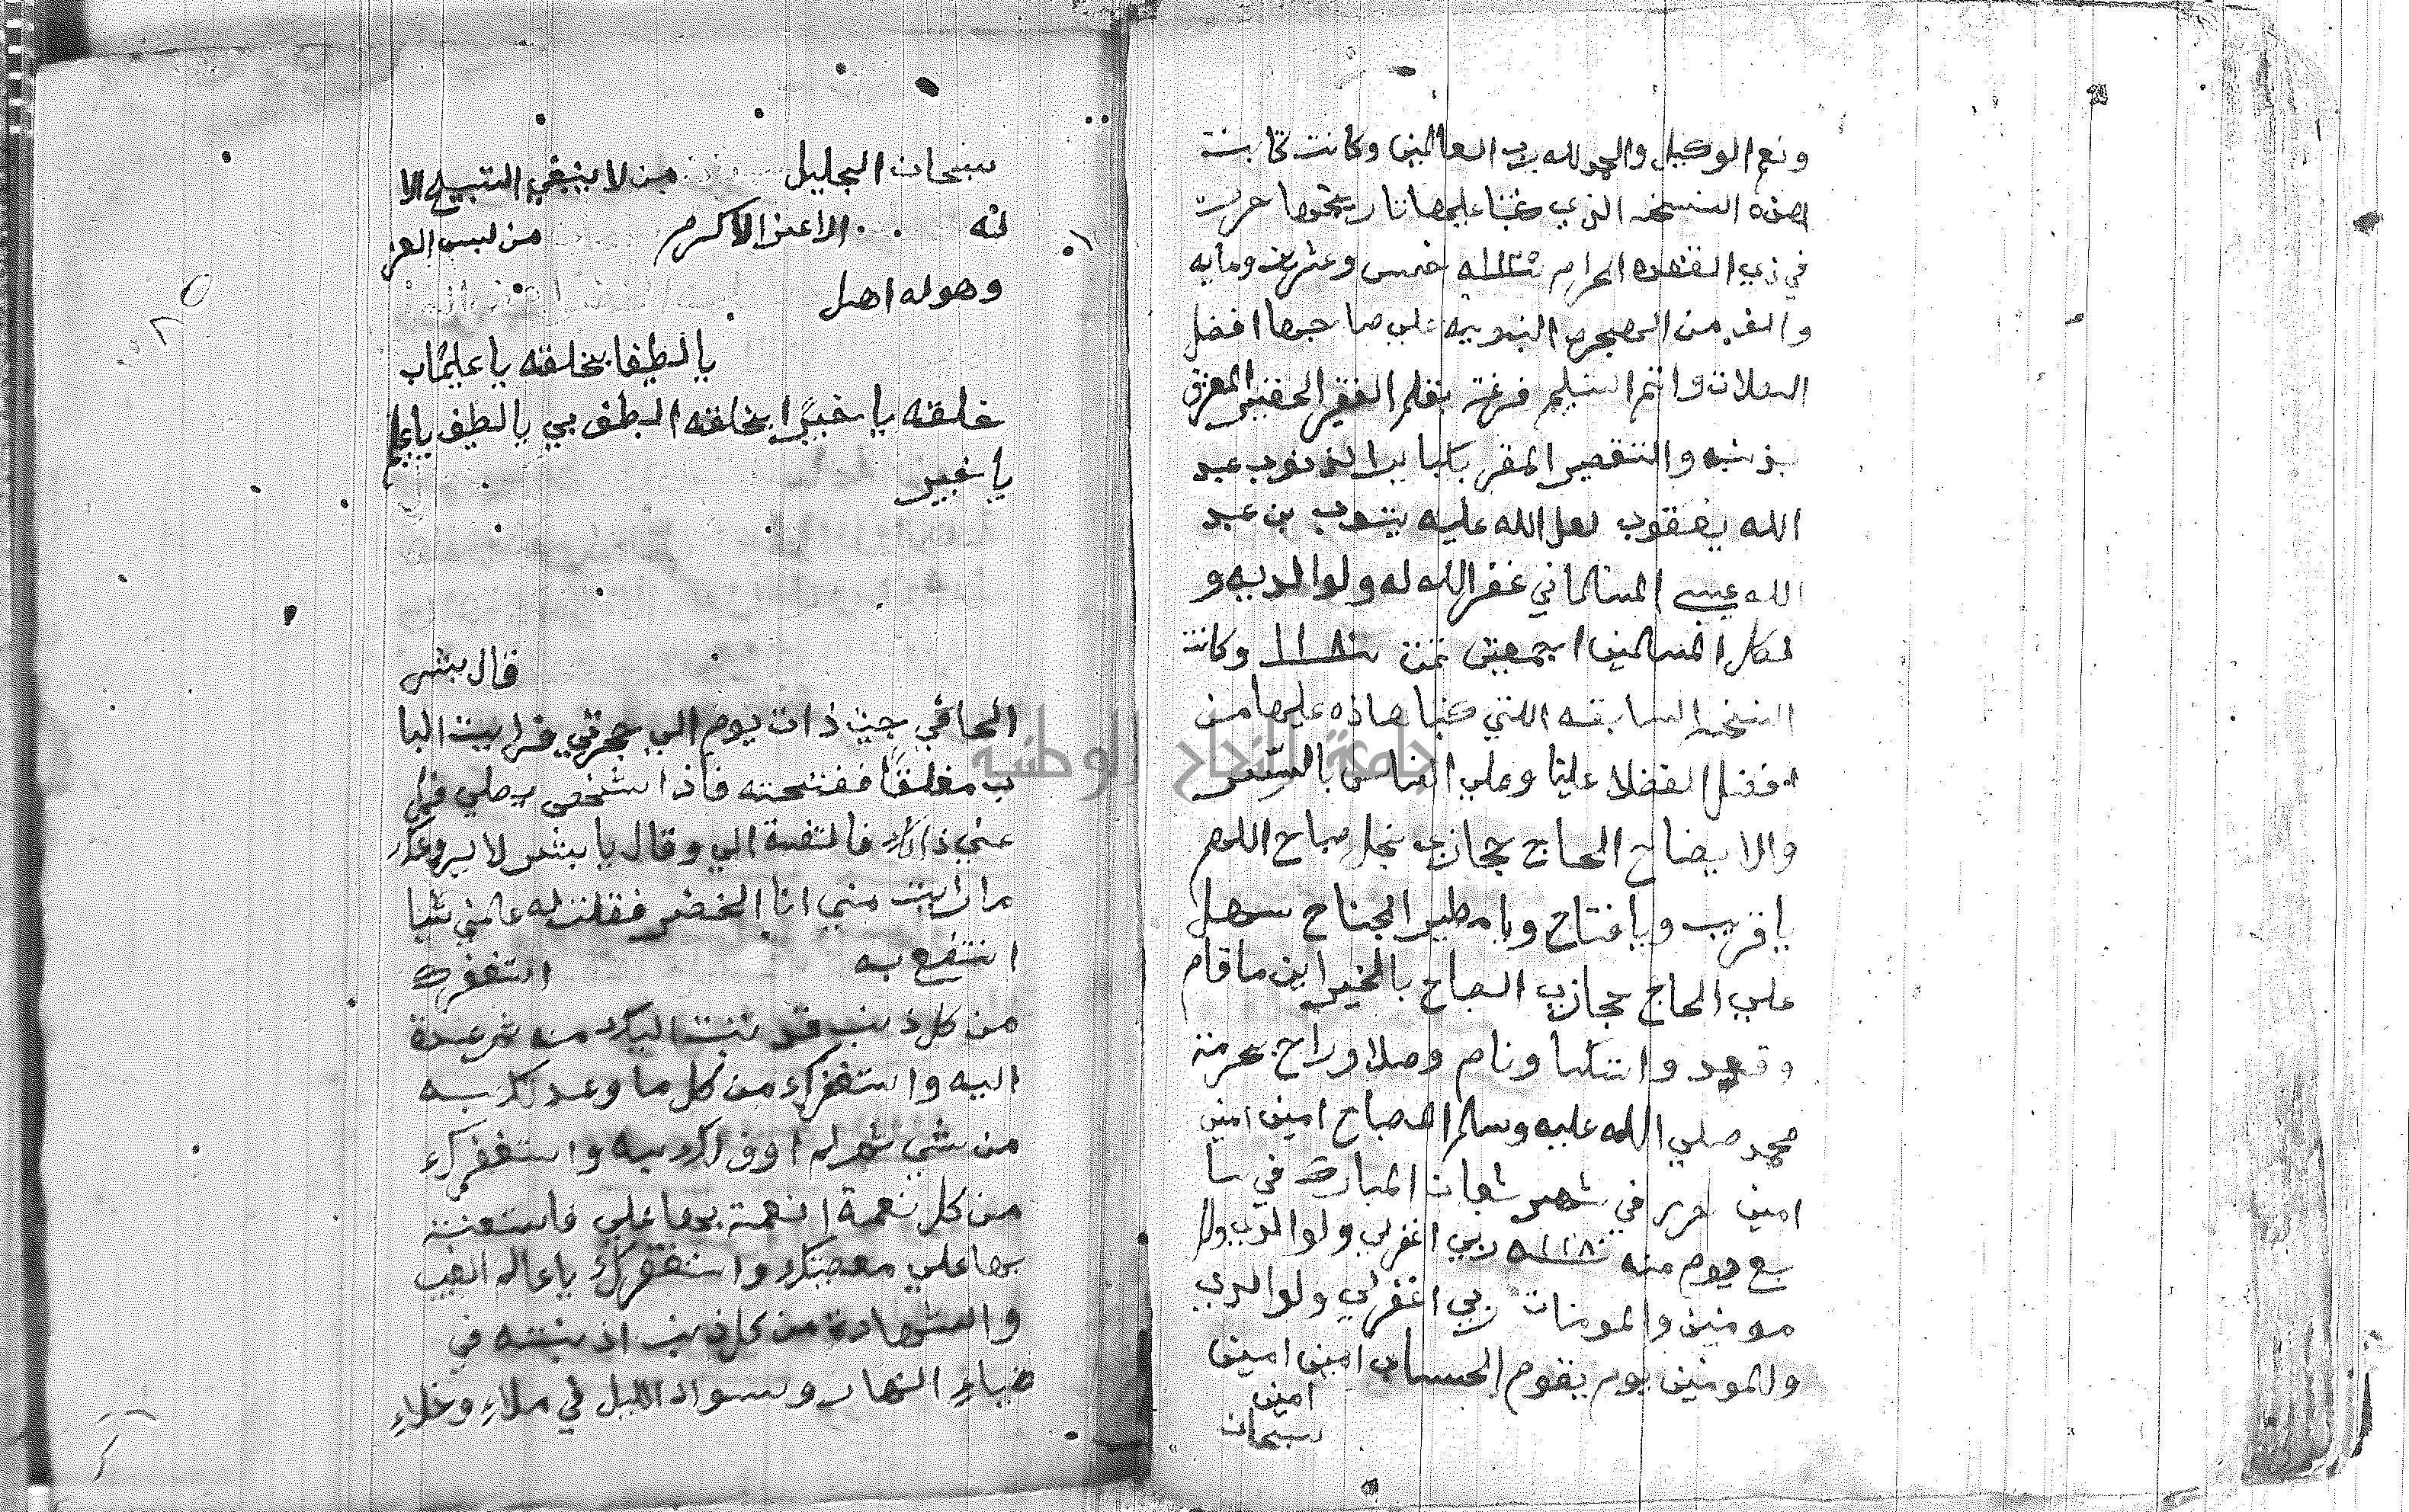 ونعم الوكيل والحمد لله رب العالمين وكانت كابنت
هذه النسخه الذي كتبنا عليها تاريخها حررت
في ذي القعده الحرام سنة خمس وعشرين ومايه
والف من الهجره النبويه علي صاحبها افضل
الصلات واتم التسليم فرغة بقلم الفقير الحقير المعترف
بذنبه والتقصير المقر بكبا ير الذنوب عبد
الله يعقوب لعل الله عليه يتوب بن عبد
الله عيسي المسلماني غفر الله له ولوالديه و
لكل المسلمين اجمعين تمت سنة ١١٨ وكانت
النسخه السابقه اللتي كتبنا هاذه عليها من
افضل الفضلا علينا وعلي الناس بالستر
والا يضاح الحاج حجازي نجل صباح اللهم
يا قريب ويا فتاح ويا مطير الجناح سهل
علي الحاج حجازي الصباح بالخير اين ما قام
وقعد واتتكا ونام وصلا وراح بحرمة
محمد صلي الله عليه وسلم الصباح امين امين
امين حرر في شهر شعبان المبارك في سا
بع يوم منه سنة ١١٨ ربي اغفر لي ولوالدي ولل
مومنين والمومنات ربي اغفر لي ولوالدي
وللمومنين يوم يقوم الحساب امين امين
امين
سبحان
سبحان الجليل من لا ينبغي التسبيح الا
له الاعز الاكرم من لبس العز
وهو له اهل
يا لطيفا بخلقه يا عليما ب
خلقه يا خبيرا بخلقه الطف بي يا لطيف يا عليم
يا خبير
قال بشر
الحافي جيت ذات يوم الي حجرتي فرايت البا
ب مغلقا ففتحته فاذا شخص يصلي
عني ذالك فالتفة الي وقال يا بشر لا يروعك
ما رايت مني انا الخضر فقلت له علمني شيا
انتفع به استغفرك
من كل ذنب قد تبت اليك منه ثم عدة
اليه واستغفرك من كل ما وعدتك به
من شي ثم لم اوف لك به واستغفرك
من كل نعمة انعمة بها علي فاستعنت
بها علي معصيتك واستغفرك يا عالم الغيب
والشهادة من كل ذنب اذنبته في
ضياء النهار وسواد الليل في ملاء وخلاء
جامعة النجاح الوطنية